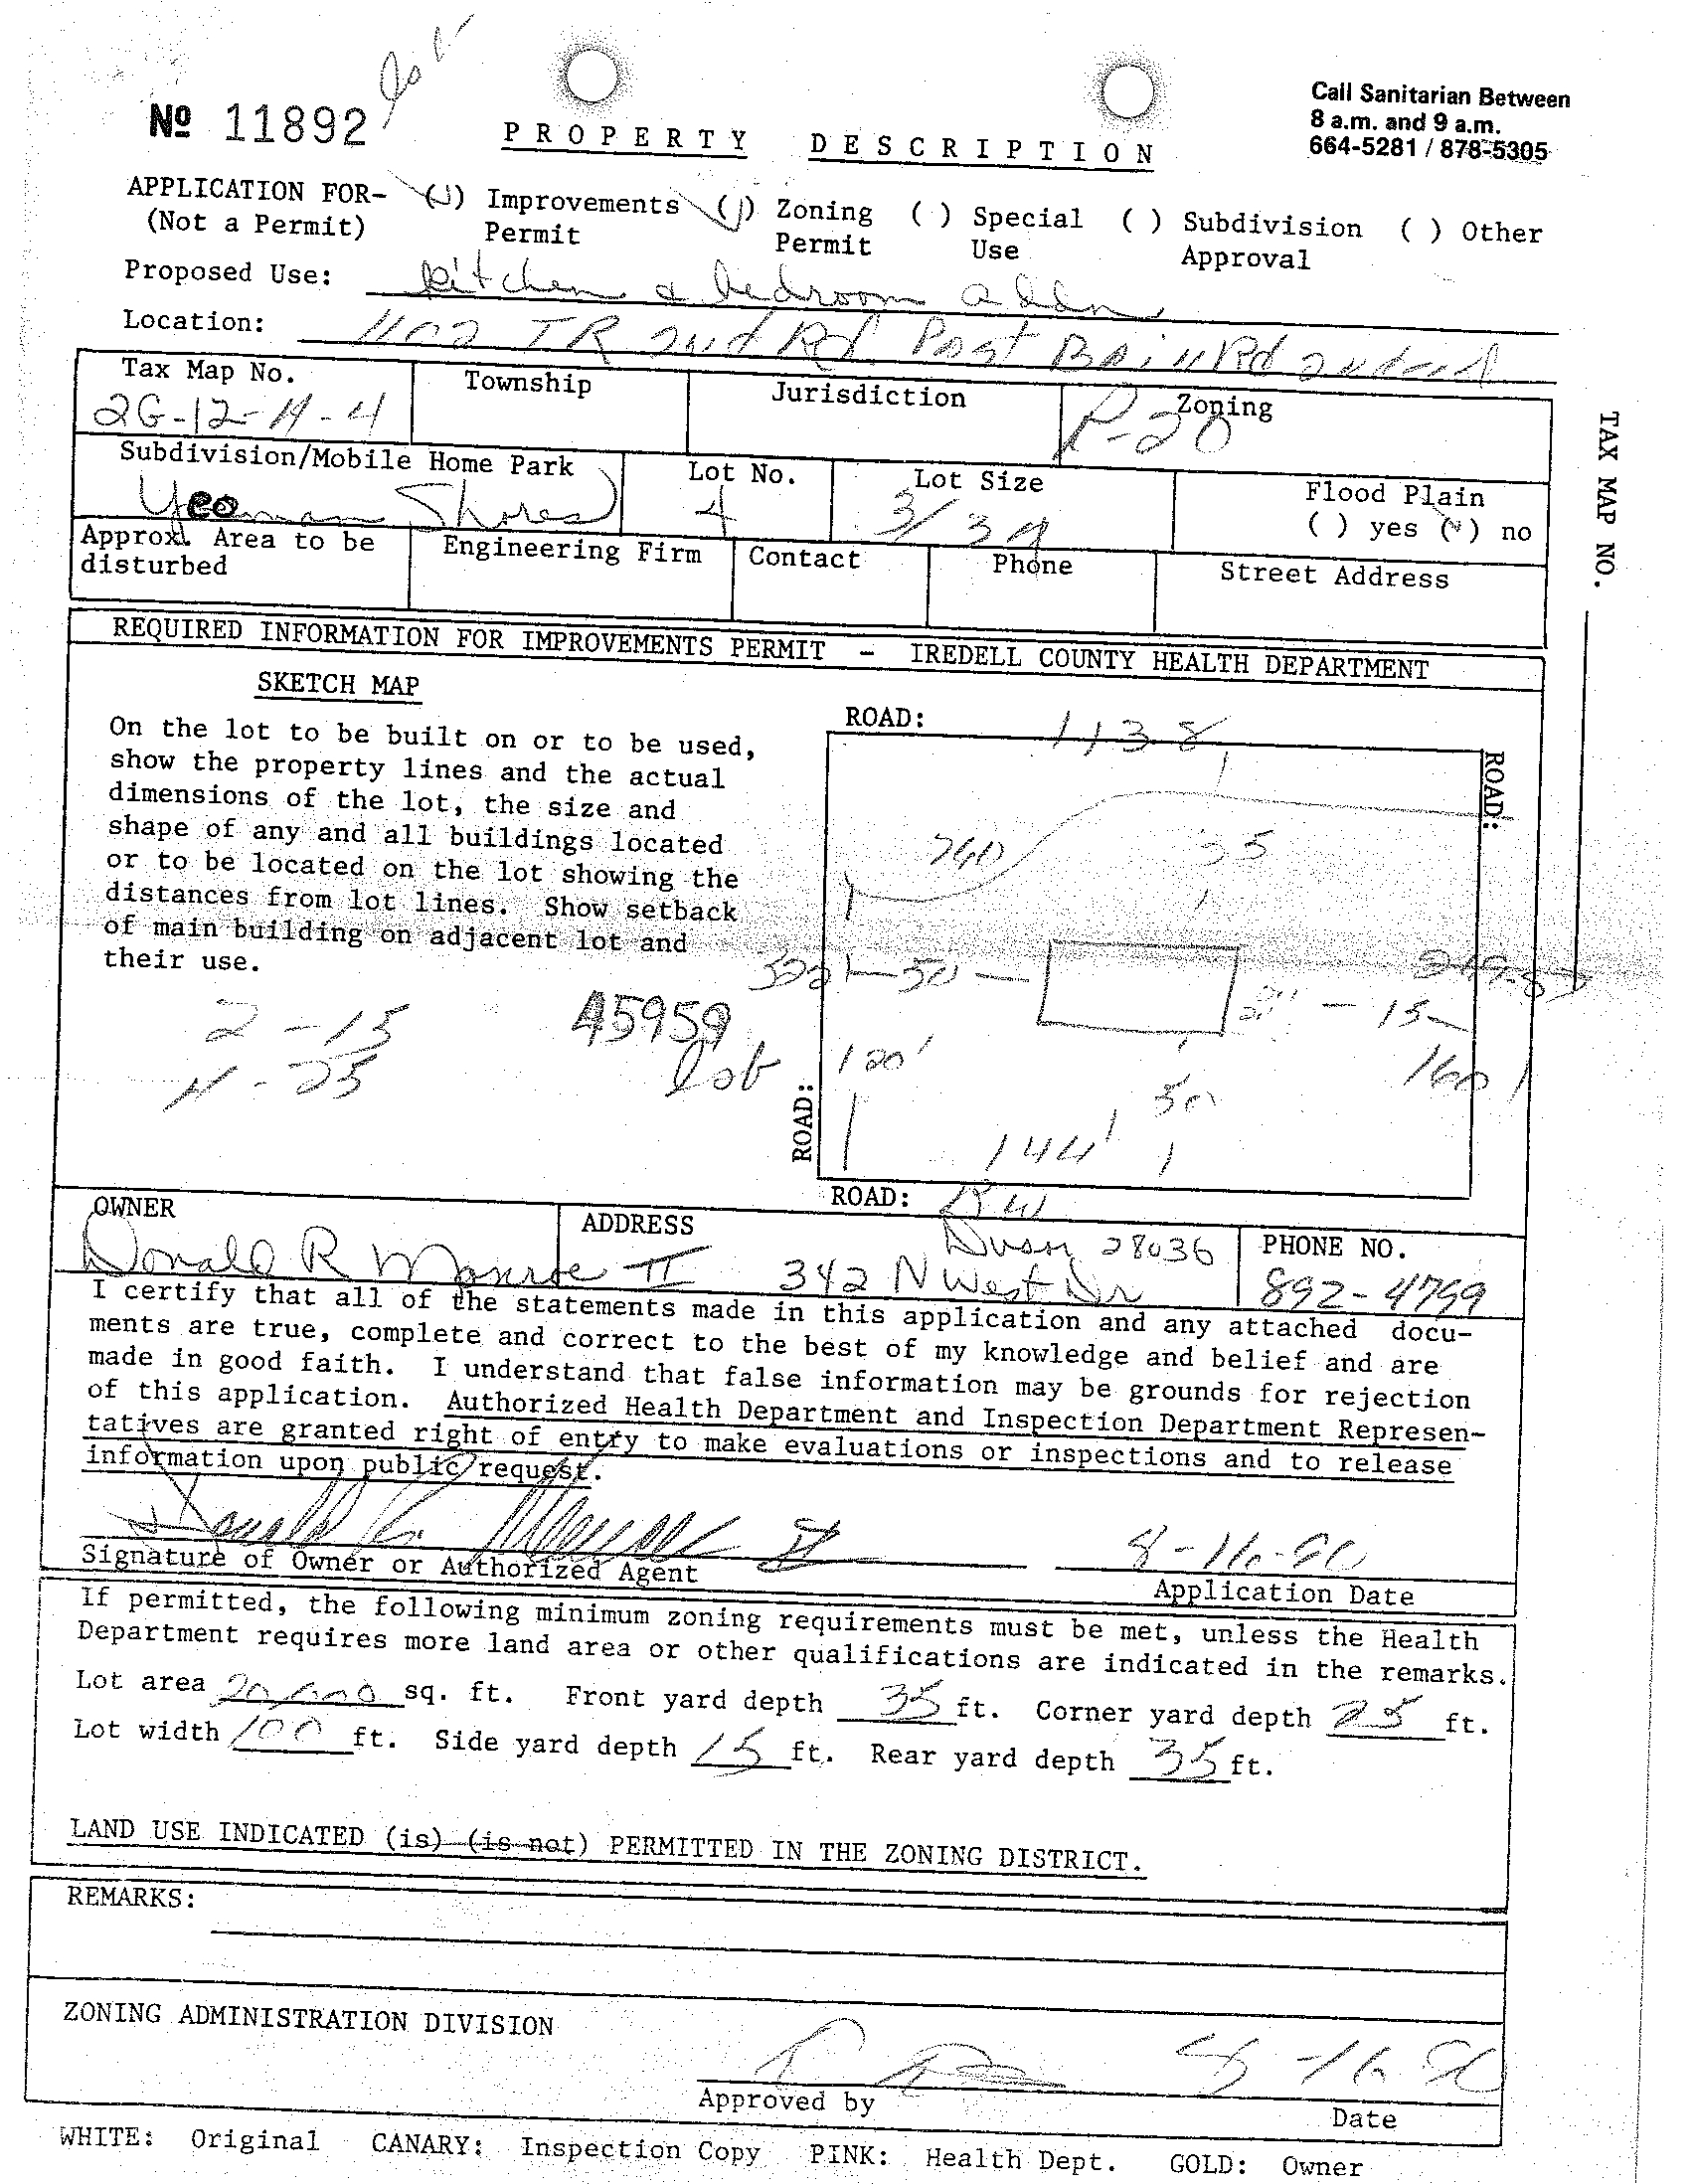 Nº 11892
Call Sanitarian Between
8 a.m. and 9 a.m.
664-5281 / 878-5305
PROPERTY DESCRIPTION
APPLICATION FOR- ( ) Improvements ( ) Zoning ( ) Special ( ) Subdivision ( ) Other
(Not a Permit) Permit Permit Use Approval
Proposed Use: kitchen & bedroom addn
Location: 1102 TR 2nd Rd Past
Tax Map No. Township Jurisdiction Zoning
2G-12-A-4 R-20
Subdivision/Mobile Home Park Lot No. Lot Size Flood Plain
Yeoman Shores 4 3/3 A ( ) yes (✓) no
Approx. Area to be Engineering Firm Contact Phone Street Address
disturbed
TAX MAP NO.
REQUIRED INFORMATION FOR IMPROVEMENTS PERMIT - IREDELL COUNTY HEALTH DEPARTMENT
SKETCH MAP
On the lot to be built on or to be used,
show the property lines and the actual
dimensions of the lot, the size and
shape of any and all buildings located
or to be located on the lot showing the
distances from lot lines. Show setback
of main building on adjacent lot and
their use.
2 - 15
4 - 25
45959
ROAD: 1138
ROAD:
760
35
50
15
120'
160
50
144'
ROAD:
ROAD: RW
OWNER ADDRESS PHONE NO.
Donald R Monroe II 342 N West Dr 28036 892-4799
I certify that all of the statements made in this application and any attached docu-
ments are true, complete and correct to the best of my knowledge and belief and are
made in good faith. I understand that false information may be grounds for rejection
of this application. Authorized Health Department and Inspection Department Represen-
tatives are granted right of entry to make evaluations or inspections and to release
information upon public request.
Donald R. Monroe II 8-16-90
Signature of Owner or Authorized Agent Application Date
If permitted, the following minimum zoning requirements must be met, unless the Health
Department requires more land area or other qualifications are indicated in the remarks.
Lot area 20,000 sq. ft. Front yard depth 35 ft. Corner yard depth 25 ft.
Lot width 100 ft. Side yard depth 15 ft. Rear yard depth 35 ft.
LAND USE INDICATED (is) (is not) PERMITTED IN THE ZONING DISTRICT.
REMARKS:
ZONING ADMINISTRATION DIVISION
8-16-90
Approved by Date
WHITE: Original CANARY: Inspection Copy PINK: Health Dept. GOLD: Owner